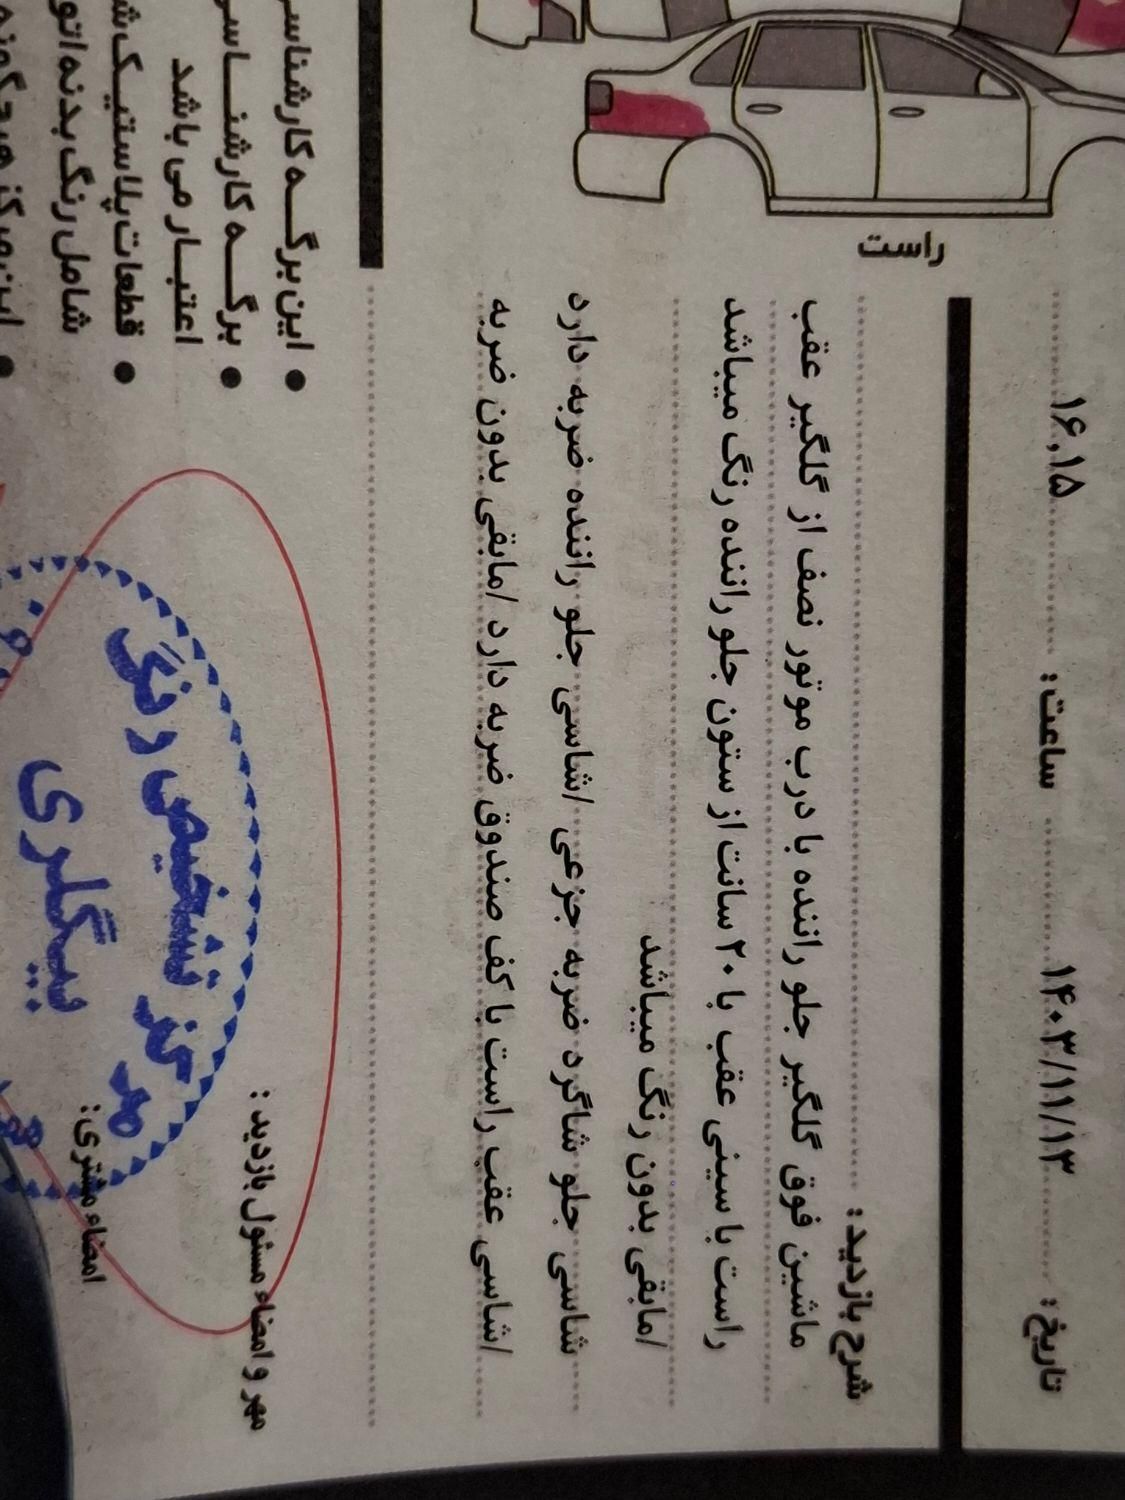 راست
تاریخ: ۱۴۰۳/۱۱/۱۳ ساعت: ۱۶,۱۵
شرح بازدید:
ماشین فوق گلگیر جلو راننده با درب موتور نصف از گلگیر عقب
راست با سینی عقب با ۲۰ سانت از ستون جلو راننده رنگ میباشد
/مابقی بدون رنگ میباشد
شاسی جلو شاگرد ضربه جزعی /شاسی جلو راننده ضربه دارد
/شاسی عقب راست با کف صندوق ضربه دارد /مابقی بدون ضربه
مهر و امضاء مسئول بازدید:
امضاء مشتری:
مرکز تشخیص رنگ
بیگلری
• این برگه کارشناسی
• برگه کارشناسی
اعتبار می باشد
• قطعات پلاستیک
شامل رنگ بدنه اتو
• این مرکز هیچگونه